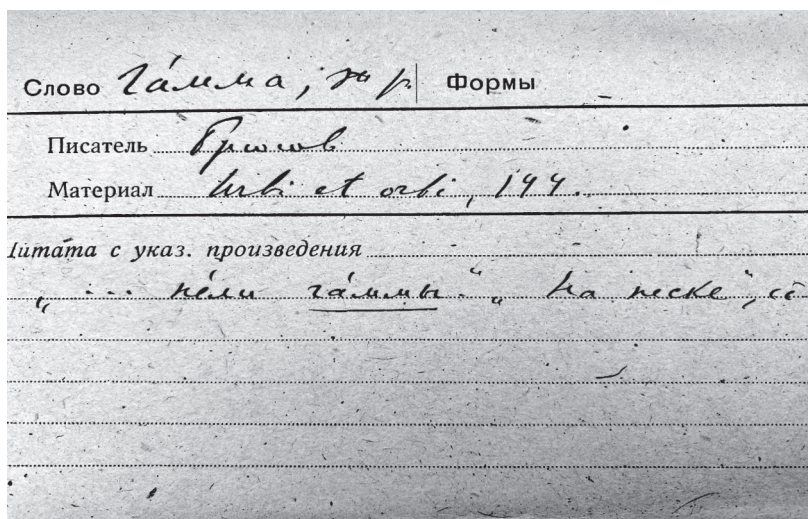 Слово га́мма, ж р. Формы
Писатель Брюсов
Материал Urbi et orbi, 144.
Цитата с указ. произведения
„ ... пе́ли га́ммы.“ „На песке“,